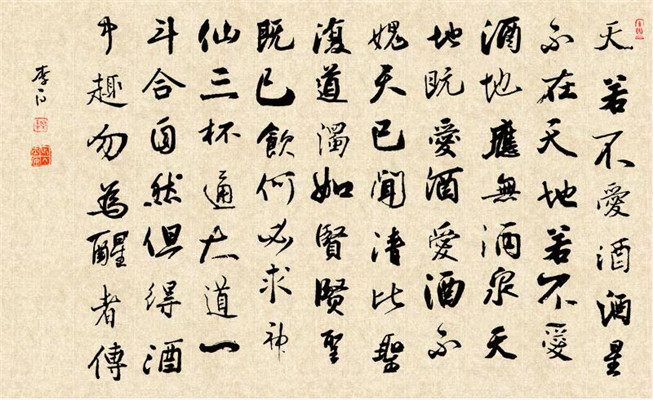 天若不愛酒酒星
不在天地若不愛
酒地應無酒泉天
地既愛酒愛酒不
愧天已聞清比聖
復道濁如賢賢聖
既已飲何必求神
仙三杯通大道一
斗合自然但得酒
中趣勿為醒者傳
李白